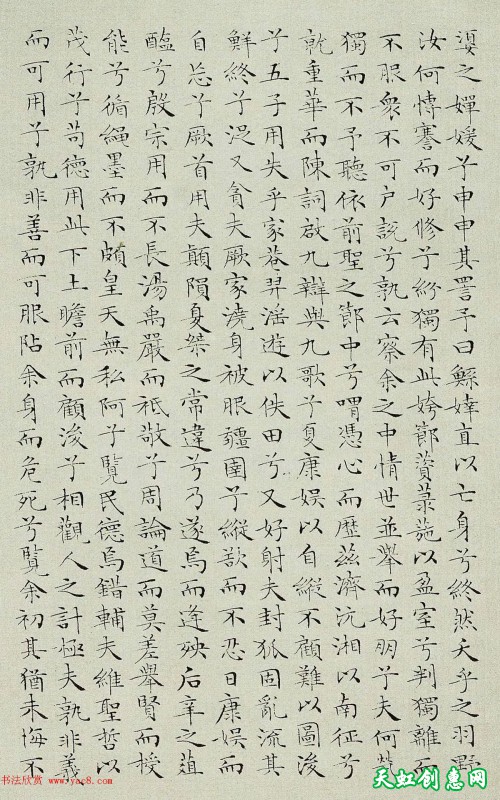 嬃之嬋媛兮申申其詈予曰鯀婞直以亡身兮終然夭乎之羽野
汝何博謇而好修兮紛獨有此姱節薋菉葹以盈室兮判獨離而
不服衆不可户説兮孰云察余之中情世並舉而好朋兮夫何煢
獨而不予聽依前聖之節中兮喟憑心而歷茲濟沅湘以南征兮
就重華而陳詞啟九辯與九歌兮夏康娛以自縱不顧難以圖後
兮五子用失乎家巷羿淫遊以佚田兮又好射夫封狐固亂流其
鮮終兮浞又貪夫厥家澆身被服疆圉兮縱欲而不忍日康娛而
自忘兮厥首用夫顛隕夏桀之常違兮乃遂焉而逢殃后辛之菹
醢兮殷宗用而不長湯禹嚴而祗敬兮周論道而莫差舉賢而授
能兮循繩墨而不頗皇天無私阿兮覽民德焉錯輔夫維聖哲以
茂行兮苟德用此下土瞻前而顧後兮相觀人之計極夫孰非義
而可用兮孰非善而可服阽余身而危死兮覽余初其猶未悔不
书法欣赏 www.yac8.com
天虹创惠网